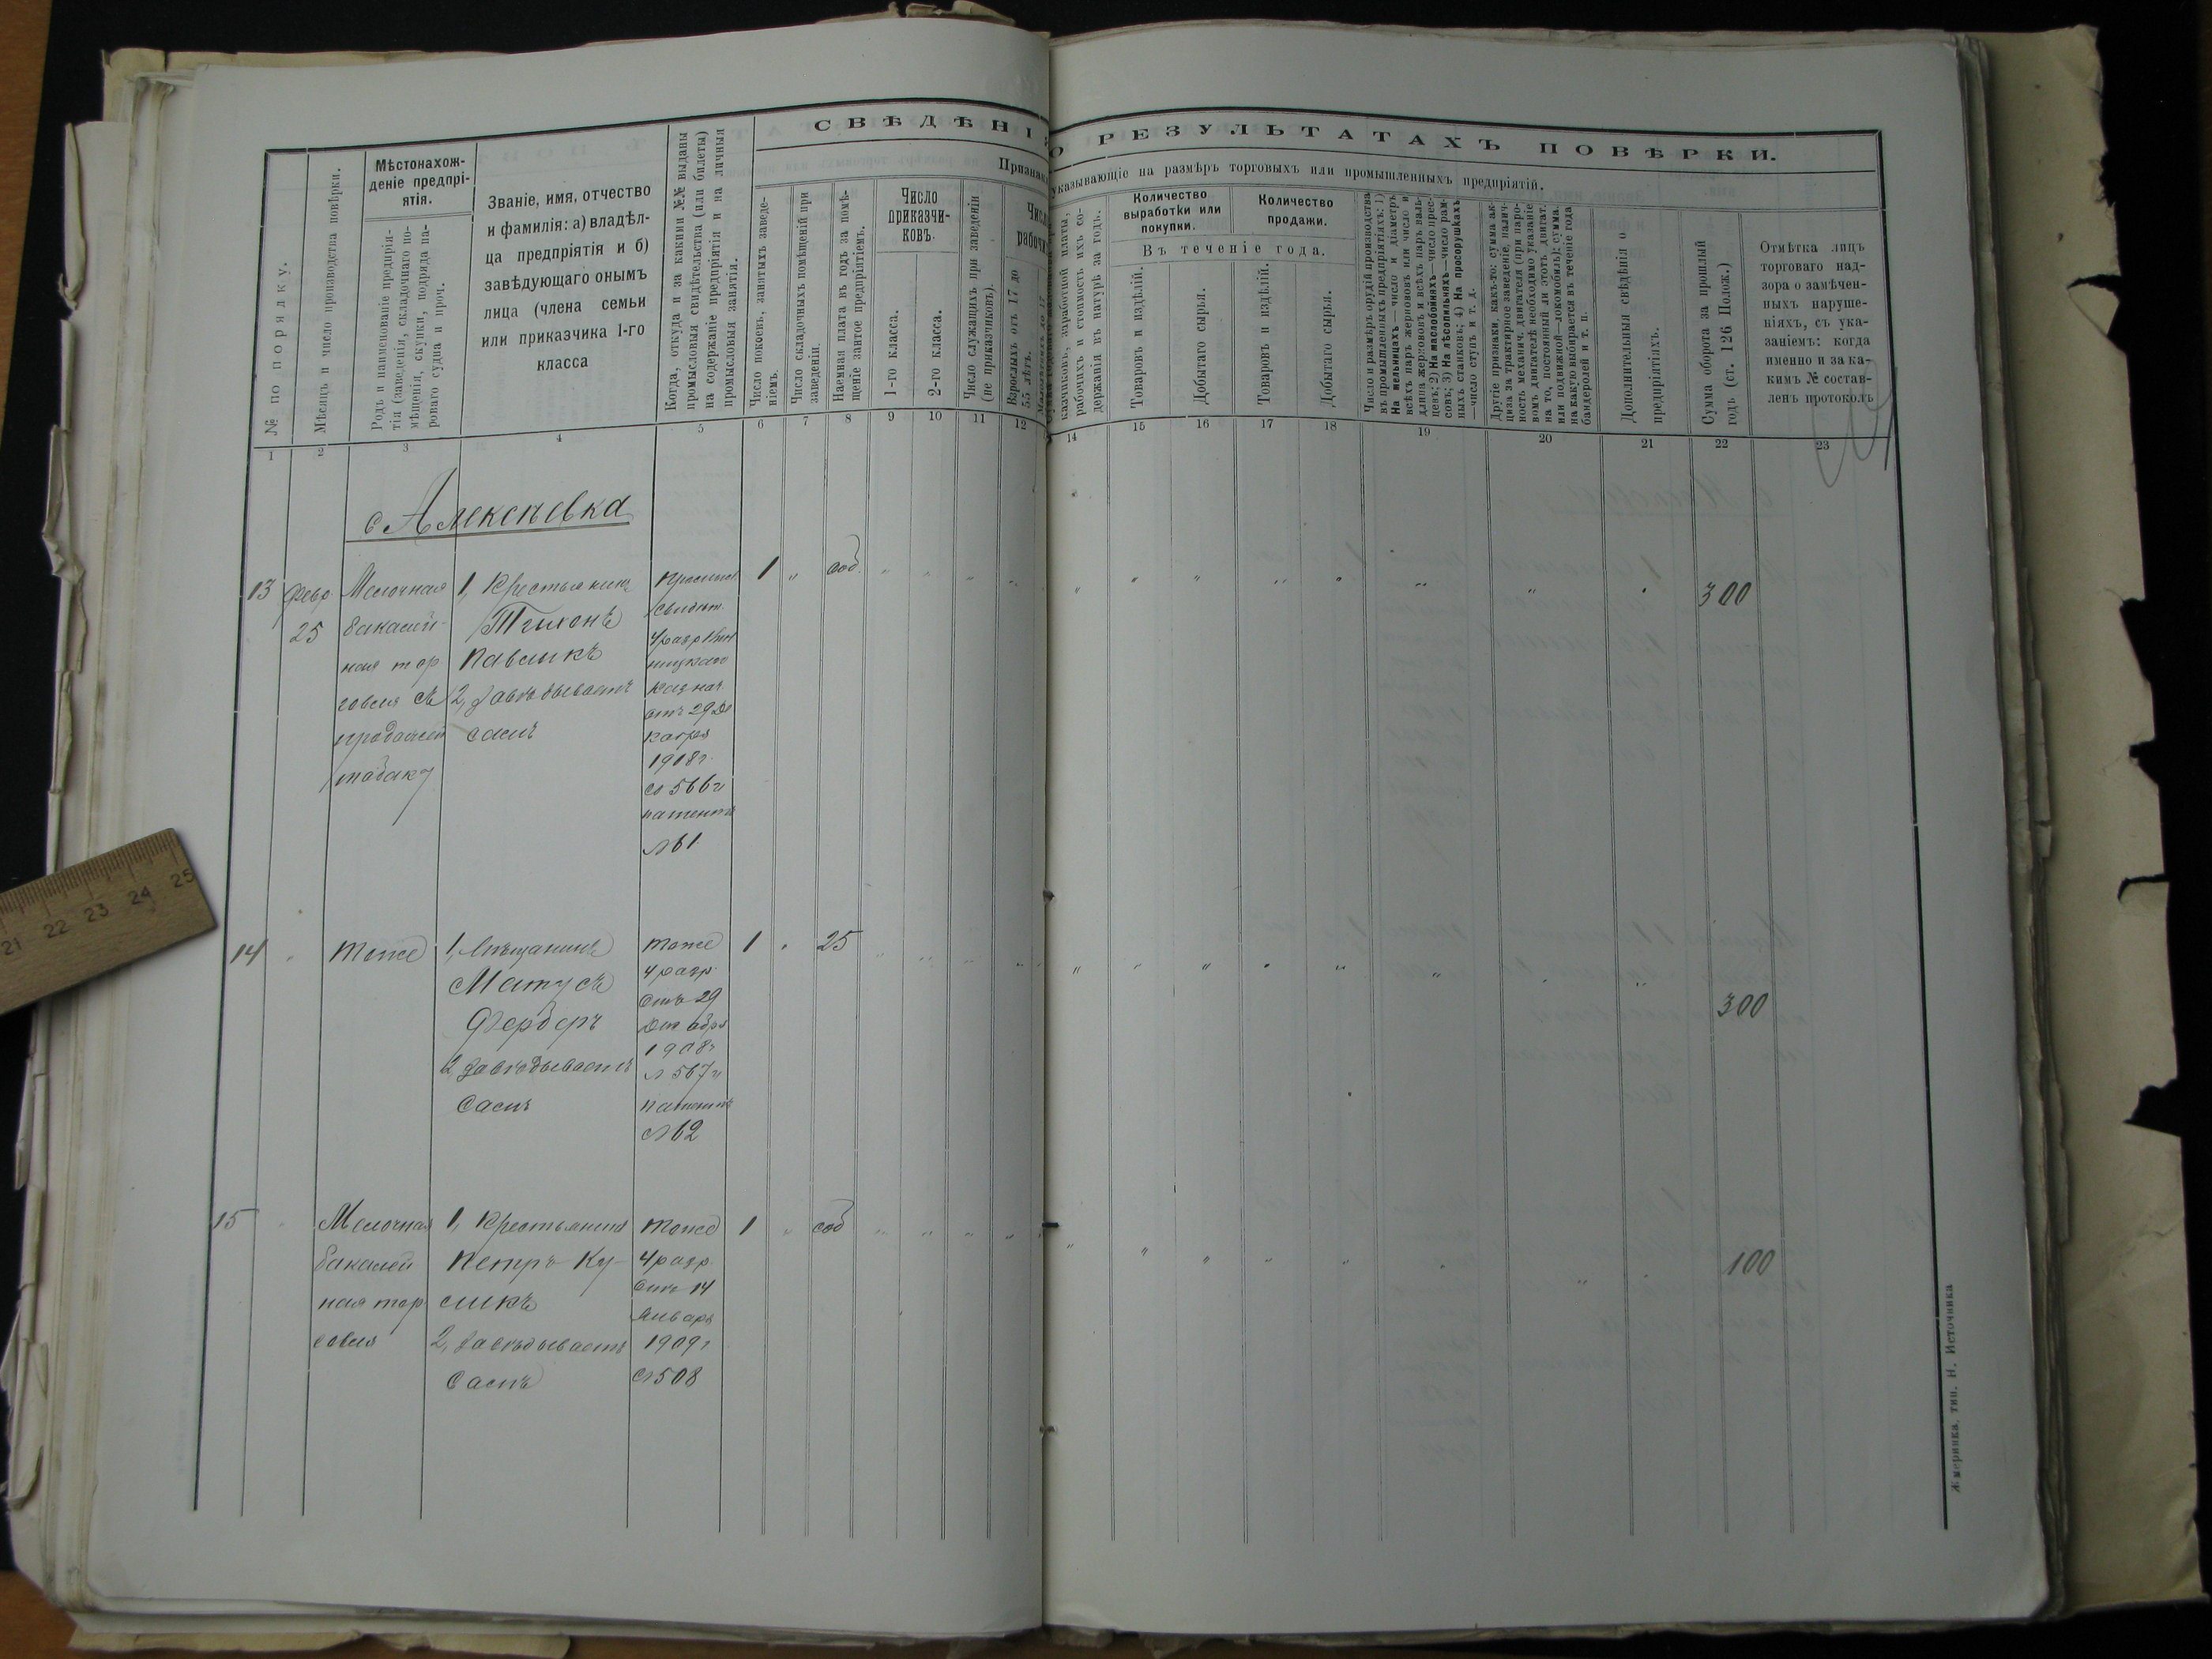 СВѢДѢНІЯ О РЕЗУЛЬТАТАХЪ ПОВѢРКИ.
указывающіе на размѣръ торговыхъ или промышленныхъ предпріятій.
№ по порядку.
Мѣсяцъ и число производства повѣрки.
Мѣстонахож-
деніе предпрі-
ятія.
Родъ и наименованіе предпрія-
тія (заведенія, складочнаго по-
мѣщенія, скупки, подряда па-
роваго судна и проч.
Званіе, имя, отчество
и фамилія: а) владѣл-
ца предпріятія и б)
завѣдующаго онымъ
лица (члена семьи
или приказчика 1-го
класса
Когда, откуда и за какими №№ выданы
промысловыя свидѣтельства (или билеты)
на содержаніе предпріятія и на личныя
промысловыя занятія.
Число покоевъ, занятыхъ заведе-
ніемъ.
Число складочныхъ помѣщеній при
заведеніи.
Наемная плата въ годъ за помѣ-
щеніе занятое предпріятіемъ.
Число
приказчи-
ковъ.
1-го класса.
2-го класса.
Число служащихъ при заведеніи
(не приказчиковъ).
Взрослыхъ отъ 17 до
55 лѣтъ.
казчиковъ, заработной платы,
рабочихъ и стоимость ихъ со-
держанія въ натурѣ за годъ.
Количество
выработки или
покупки.
Количество
продажи.
Въ теченіе года.
Товаровъ и издѣлій.
Добытаго сырья.
Товаровъ и издѣлій.
Добытаго сырья.
Число и размѣръ орудій производства
въ промышленныхъ предпріятіяхъ: 1)
На мельницахъ—число и діаметръ
всѣхъ паръ жернововъ или число и
длина жерновокъ и всѣхъ паръ валь-
цевъ; 2) На маслобойняхъ—число прес-
совъ; 3) На лѣсопильняхъ—число рам-
ныхъ станковъ; 4) На просорушкахъ
—число ступъ и т. д.
Другіе признаки, какъ-то: сумма ак-
циза за трактирное заведеніе, налич-
ность механич. двигателя (при паро-
вомъ двигателѣ необходимо указаніе
на то, постоянный ли этотъ двигат.
или подвижной—локомобиль); сумма.
на какую выбирается въ теченіе года
бандеролей и т. п.
Дополнительныя свѣдѣнія о
предпріятіяхъ.
Сумма оборота за прошлый
годъ (ст. 126 Полож.)
Отмѣтка лицъ
торговаго над-
зора о замѣчен-
ныхъ наруше-
ніяхъ, съ ука-
заніемъ: когда
именно и за ка-
кимъ № состав-
ленъ протоколъ
1 2 3 4 5 6 7 8 9 10 11 12 14 15 16 17 18 19 20 21 22 23
с Алексѣевка
13 Февр Мелочная 1, Крестьянинъ 1 " соб. 300
25 бакалей- Тихонъ свидѣт.
ная тор Павликъ 4 разр
говля съ 2, Завѣдываетъ казнач.
продажей самъ отъ 29 Де
табаку кабря
1908 г.
№ 5662
патентъ
№ 61
14 " Тоже 1, Мѣщанинъ Тоже 1 " 25 300
Матусъ 4 разр.
Ферберъ отъ 29
2, Завѣдываетъ Декабря
Самъ 1908 г
№ 5672
патентъ
№ 62
15 " Мелочная 1, Крестьянинъ Тоже 1 " соб 100
бакалей Петръ Ку- 4 разр.
ная тор сликъ отъ 14
говля 2, Завѣдываетъ Январь
Самъ 1909 г
№ 508
Жмеринка, тип. Н. Источника
21 22 23 24 25